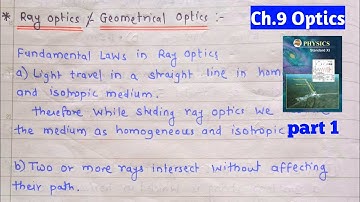 * Ray optics / Geometrical Optics :-
Ch.9 Optics
Fundamental Laws in Ray Optics
a) Light travel in a straight line in hom
and isotropic medium.
therefore while studing ray optics we
the medium as homogeneous and isotropic
PHYSICS
Standard XI
part 1
b) Two or more rays intersect without affecting
their path.